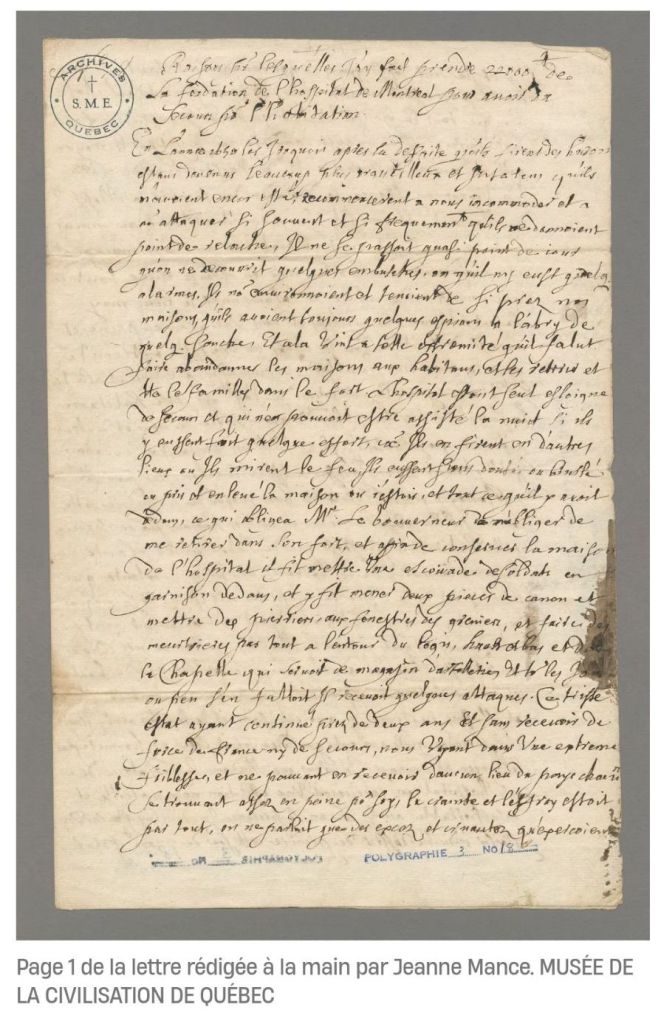 ARCHIVES
S.M.E.
QUEBEC
Raisons sur lesquelles J'ay fait prendre 22000 # de
La fondation de l'hospital de Montreal pour avoir du
Secours
En Lannee 1650 les Iroquois apres la defaite qu'ils firent des hurons
estans devenus beaucoup plus et Insolens qu'ils
n'avoient encor esté, recommencerent a nous incommoder et a
no attaquer si souvent et si frequement qu'ils ne donnoient
point de relache, Il ne se passait quasi point de iour
qu'on ne decouvrit quelques embusches, ou qu'il n'y eust quelq
alarmes. Ils no environnoient et tenoient de si prez nos
maisons, qu'ils avoient toujours quelques espions a l'abry de
quelq souches. Et cela vint a telle extremité qu'il falut
faire abandonner les maisons aux habitans, et les retirer et
les familles dans le fort. l'hospital estant seul esloigné
de secours et qui n'en pouvoit estre assisté la nuict si ils
y eussent fait quelque effort, Ils en firent en d'autres
lieux ou Ils mirent le feu, Ils eussent sans doute ou brulé
ou pris et enlevé la maison ou i'estois, et tout ce qu'il y avoit
dedans, ce qui obligea Mr Le Gouverneur de m'obliger de
me retirer dans son fort, et affin de conserver la maison
de l'hospital il fit mettre une escouade de soldats en
garnison dedans, et y fit mener deux pieces de canon et
mettre des pierriers aux fenestres des greniers, et faire des
meurtrieres par tout a l'entour du logis, haut et bas et dans
la Chapelle qui servoit de magasin et to les Jours
ou peu s'en falloit Il recevoit quelques attaques. Ce triste
estat ayant continue prez de deux ans Et sans recevoir de
de france ny de secours, nous voyant dans Une extreme
foiblesse, et ne pouvant en recevoir d'aucun lieu du pays
se trouvant assez en peine po soy, la crainte et l'effroy estoit
par tout, on ne parloit que des excez et cruautez
POLYGRAPHIE 3 NO 18
Page 1 de la lettre rédigée à la main par Jeanne Mance. MUSÉE DE
LA CIVILISATION DE QUÉBEC